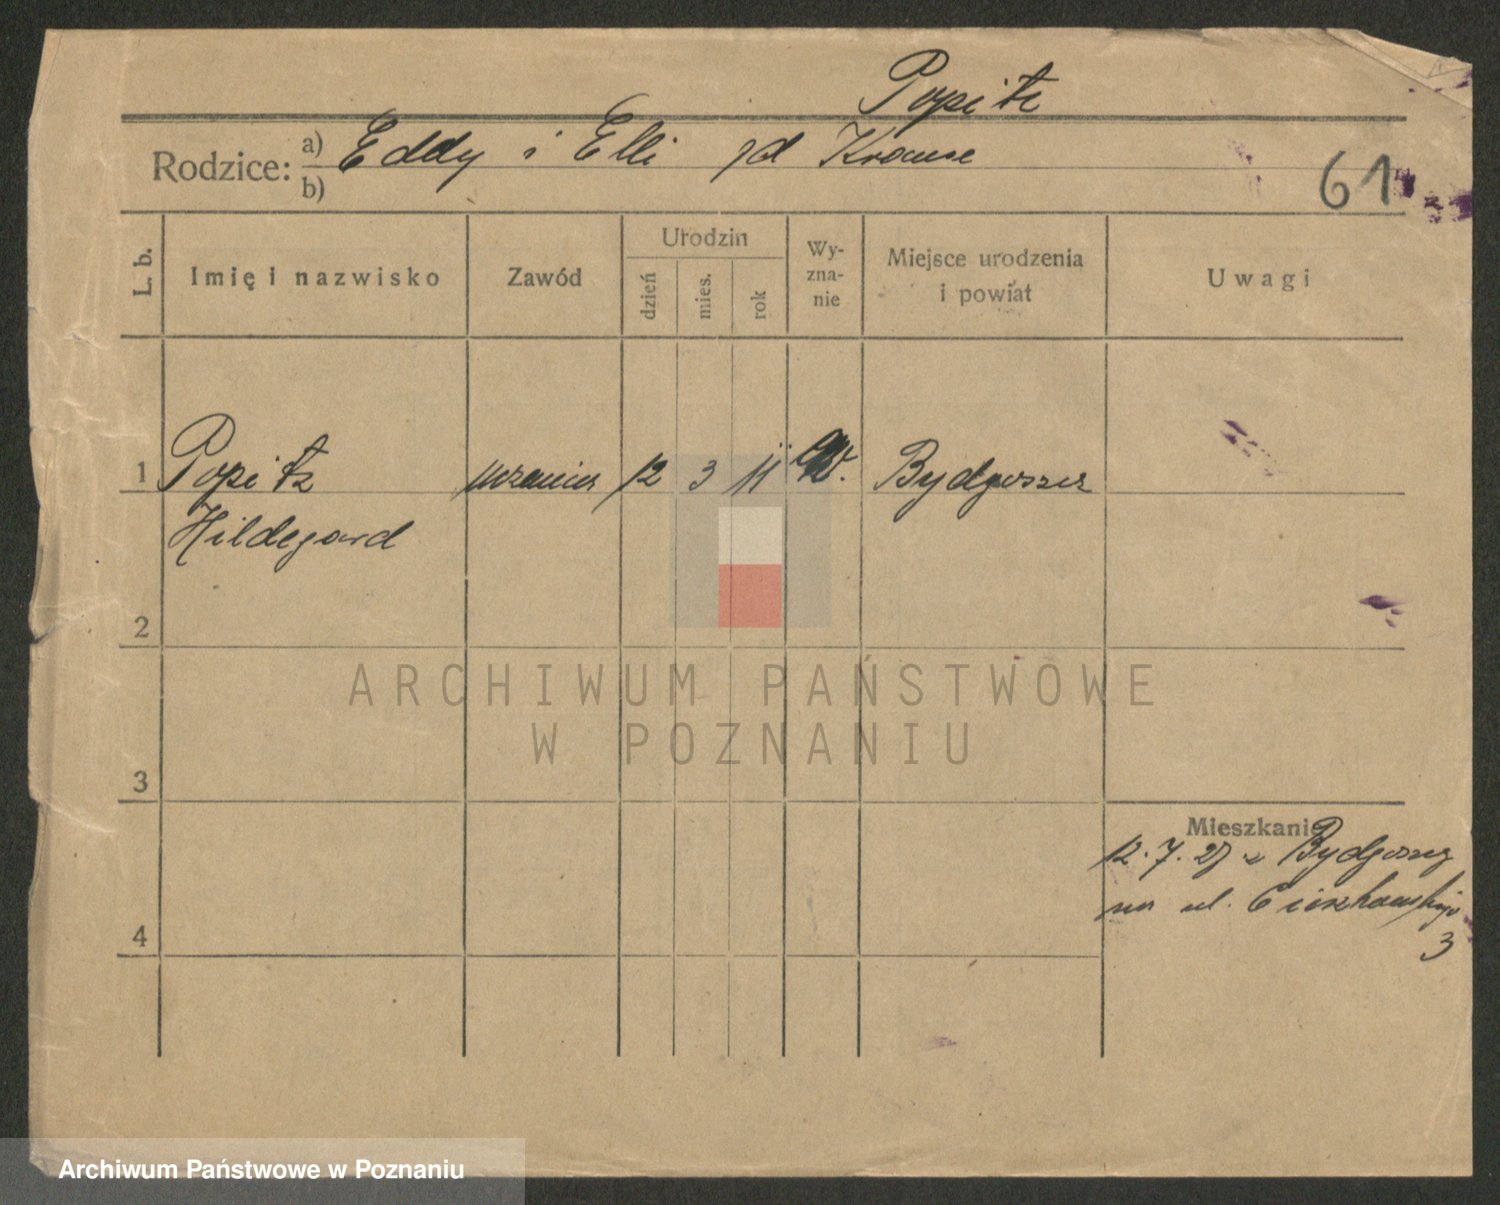 Popitz
Rodzice: a) Eddy i Elli zd Krause
b)
61
L. b. Imię i nazwisko Zawód Urodzin dzień mies. rok Wy-zna-nie Miejsce urodzenia i powiat Uwagi
1 Popitz uczenica 12 3 11 Bydgoszcz
Hildegard
2
3
4
Mieszkanie
12. 7. 27 z Bydgoszczy
na ul. Cieszkowskiego
3
ARCHIWUM PAŃSTWOWE
W POZNANIU
Archiwum Państwowe w Poznaniu